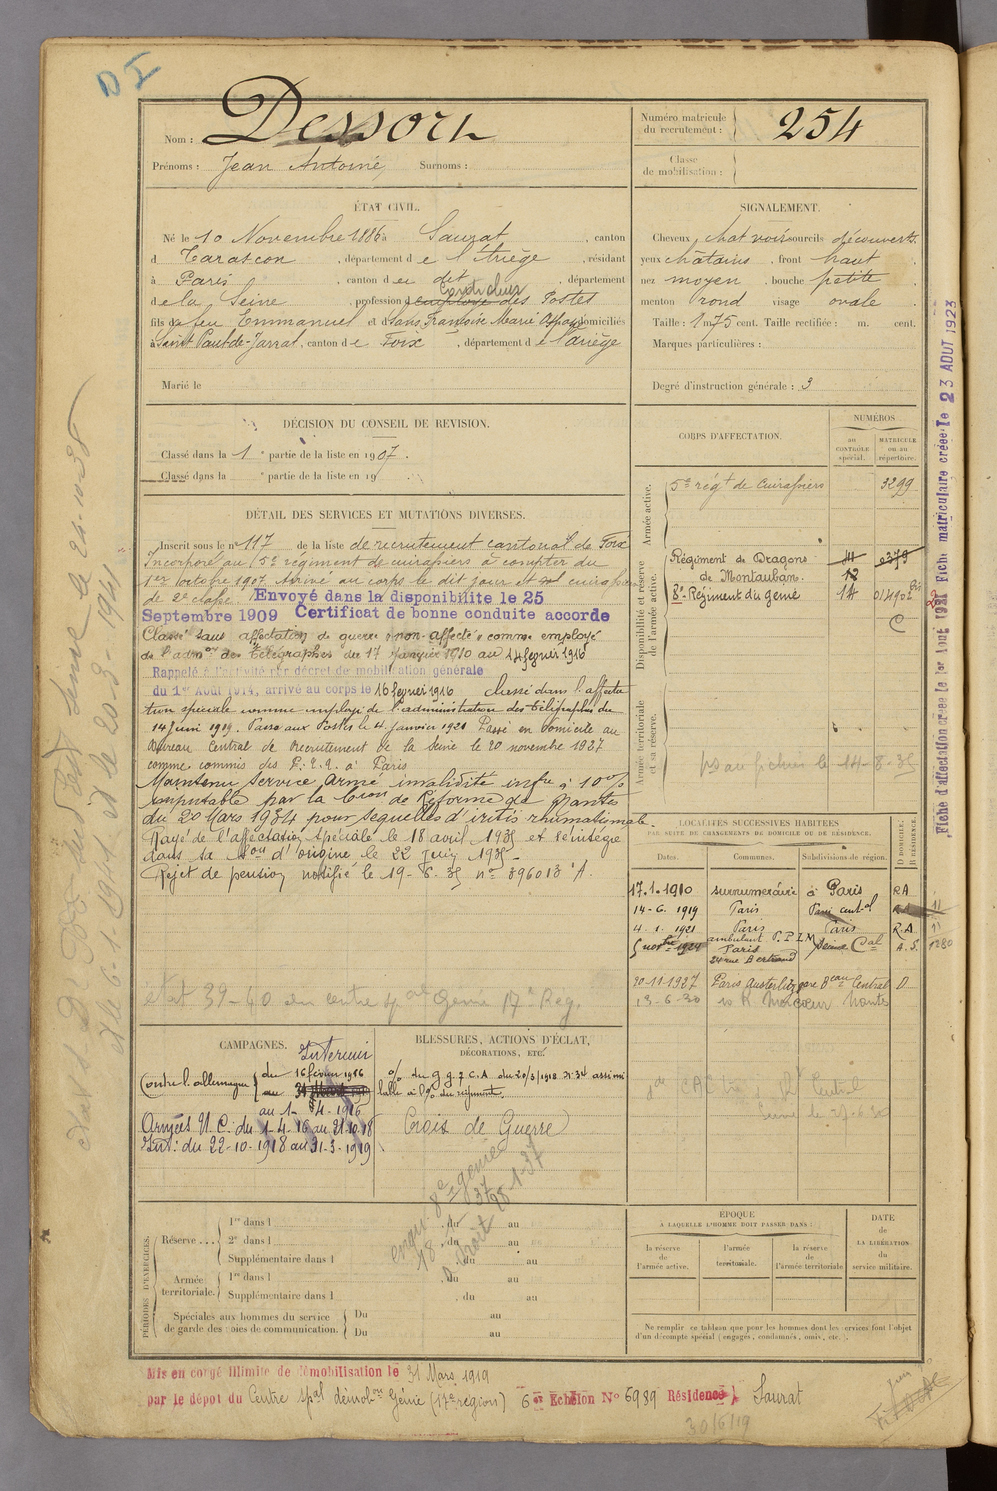 D I
Nom : Dessort
Prénoms : Jean Antoine, Surnoms :
Numéro matricule
du recrutement : 254
Classe
de mobilisation :
ÉTAT CIVIL.
Né le 10 Novembre 1886 à Saurat, canton
d Tarascon, département d e l'Ariège, résidant
à Paris, canton d eu dit, département
d e la Seine, profession d des Postes
fils de feu Emmanuel et d Françoise Marie domiciliés
à Saint Paul-de-Jarrat, canton d e Foix, département d e l'Ariège
Marié le
SIGNALEMENT.
Cheveux chat noir sourcils découverts.
yeux châtains, front haut
nez moyen, bouche petite
menton rond visage ovale
Taille : 1 m 75 cent. Taille rectifiée : m. cent.
Marques particulières :
Degré d'instruction générale : 3
DÉCISION DU CONSEIL DE REVISION.
Classé dans la 1 e partie de la liste en 1907.
Classé dans la e partie de la liste en 19
DÉTAIL DES SERVICES ET MUTATIONS DIVERSES.
Inscrit sous le n° 117 de la liste de recrutement cantonal de Foix
Incorporé au 5e régiment de cuirassiers à compter du
1er octobre 1907. Arrivé au corps le dit jour et cuirassier
de 2e classe. Envoyé dans la disponibilité le 25
Septembre 1909 Certificat de bonne conduite accordé
Classé sans affectation de guerre "non-affecté" comme employé
de l'admon des Télégraphes du 17 Janvier 1910 au 14 février 1916
Rappelé à l'activité par décret de mobilisation générale
du 1er Août 1914, arrivé au corps le 16 février 1916 Classé dans l'affecta
tion spéciale comme employé de l'administration des Télégraphes du
14 Juin 1919. Passé aux Postes le 4 Janvier 1921 Passé en domicile au
Bureau Central de Recrutement de la Seine le 20 novembre 1927
comme commis des P. T. T. à Paris
Maintenu service armé invalidité infre à 10%
imputable par la Cion de Réforme de Nantes
du 20 Mars 1934 pour séquelles d'iritis rhumatismale.
Rayé de l'affectation spéciale le 18 avril 1935 et réintégré
dans sa son d'origine le 22 Juin 1935 -
Rejet de pension notifié le 19-6-35 n° 396013 A.
état 39-40 du centre spal Génie 17e Reg.
CORPS D'AFFECTATION.
NUMÉROS
au
CONTRÔLE
spécial.
MATRICULE
ou au
répertoire.
Armée active.
5e régt de Cuirassiers 3299
Disponibilité et réserve
de l'armée active.
Régiment de Dragons 11 0379
de Montauban. 12
8e Régiment du génie 14 01490 bis
C
Armée territoriale
et sa réserve.
14-8-35
LOCALITÉS SUCCESSIVES HABITÉES
PAR SUITE DE CHANGEMENTS DE DOMICILE OU DE RÉSIDENCE.
Dates. Communes. Subdivisions de région. D DOMICILE. R RÉSIDENCE.
17.1.1910 surnuméraire à Paris R.A
14-6. 1919 Paris Paris cent.al
4.1.1921 Paris Paris R.A
5 1924 ambulant P.P.L.M Seine Cal A.S.
Paris
24 rue Bertrand
20-11-1927 Paris Austerlitz gare Beau Central D
13-6-30 10 R Nantes
CAMPAGNES.
Intérieur
Contre l'Allemagne { du 16 février 1916
au 31
au 1-4-1916
Armées N.C. du 1-4-16 au 21.10.18
Int: du 22-10-1918 au 31-3-1919
BLESSURES, ACTIONS D'ÉCLAT,
DÉCORATIONS, ETC.
O/ du G.Q.G. C.A. du 20/3/1918 N° 34 assimi
lable à l'O/ du régiment.
Croix de Guerre
8e génie
18
Droit 28-1-37
PÉRIODES D'EXERCICES.
Réserve ... 1re dans l du au
2e dans l du au
Supplémentaire dans l du au
Armée
territoriale. 1re dans l Du au
Supplémentaire dans l du au
Spéciales aux hommes du service
de garde des voies de communication. Du au
Du au
ÉPOQUE
À LAQUELLE L'HOMME DOIT PASSER DANS :
la réserve
de
l'armée active.
l'armée
territoriale.
la réserve
de
l'armée territoriale
DATE
de
LA LIBÉRATION
du
service militaire.
Ne remplir ce tableau que pour les hommes dont les services font l'objet
d'un décompte spécial (engagés, condamnés, omis, etc.).
Mis en congé illimité de démobilisation le 31 Mars 1919
par le dépôt du Centre spal démobon Génie (17e région) 6e Echelon N° 6989 Résidence } Saurat
30/6/19
Fiche d'affectation créée le 1er Août 1921 Fiche matriculaire créée le 23 AOUT 1923